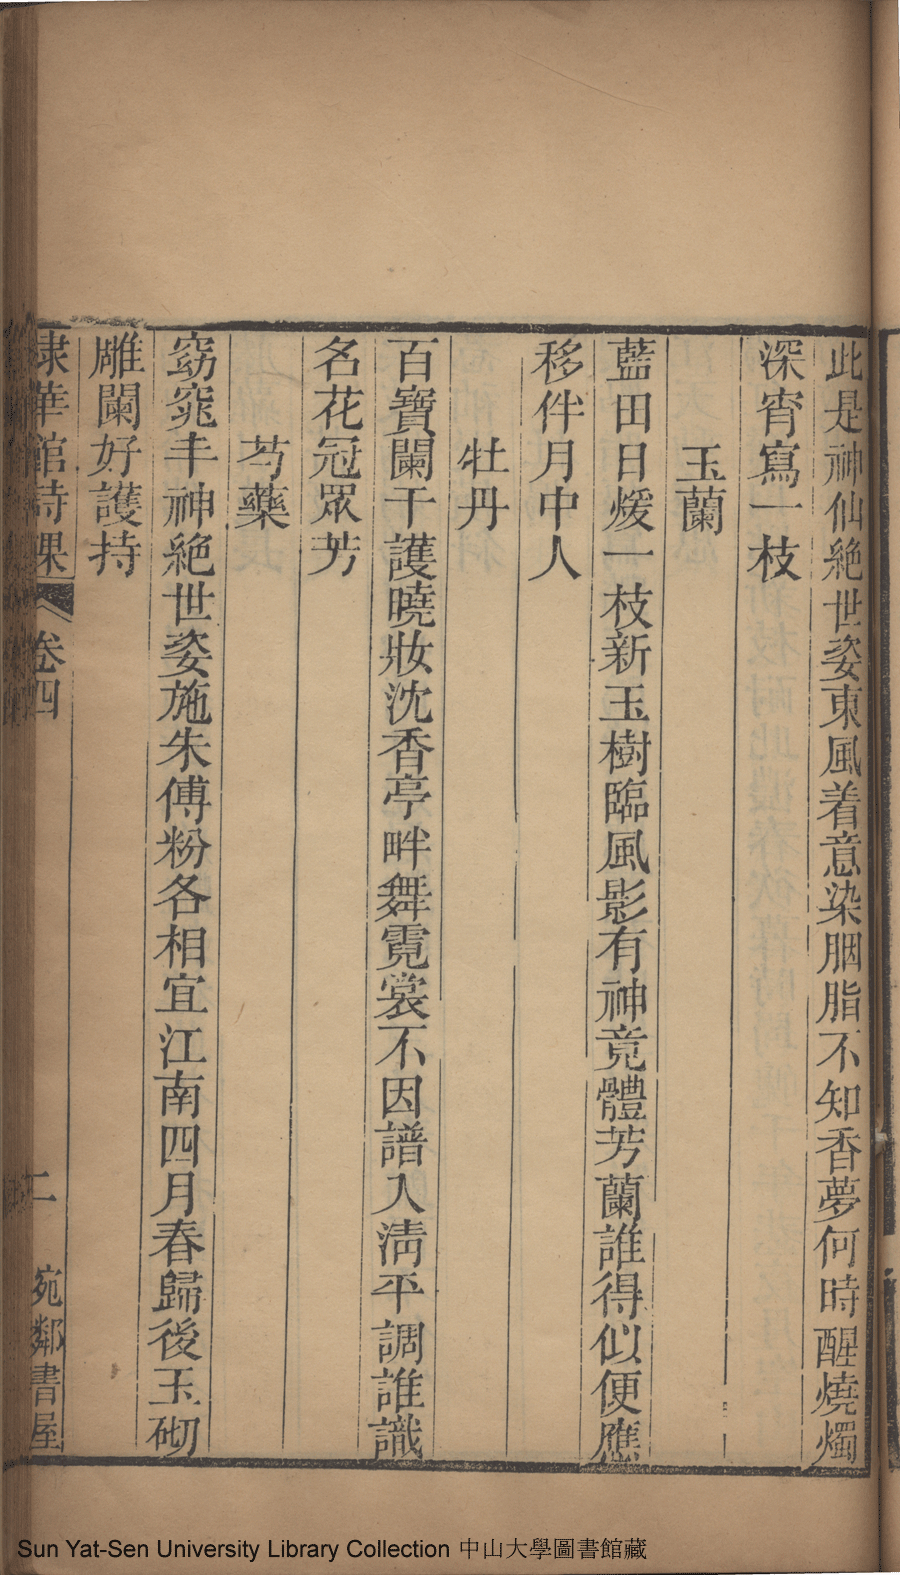 此是神仙絶世姿東風着意染胭脂不知香夢何時醒燒燭
深宵寫一枝
玉蘭
藍田日煖一枝新玉樹臨風影有神竟體芳蘭誰得似便應
移伴月中人
牡丹
百寶闌干護曉妝沈香亭畔舞霓裳不因譜入清平調誰識
名花冠眾芳
芍藥
窈窕丰神絶世姿施朱傅粉各相宜江南四月春歸後玉砌
雕闌好護持
棣華館詩課 卷四 二 宛鄰書屋
Sun Yat-Sen University Library Collection 中山大學圖書館藏